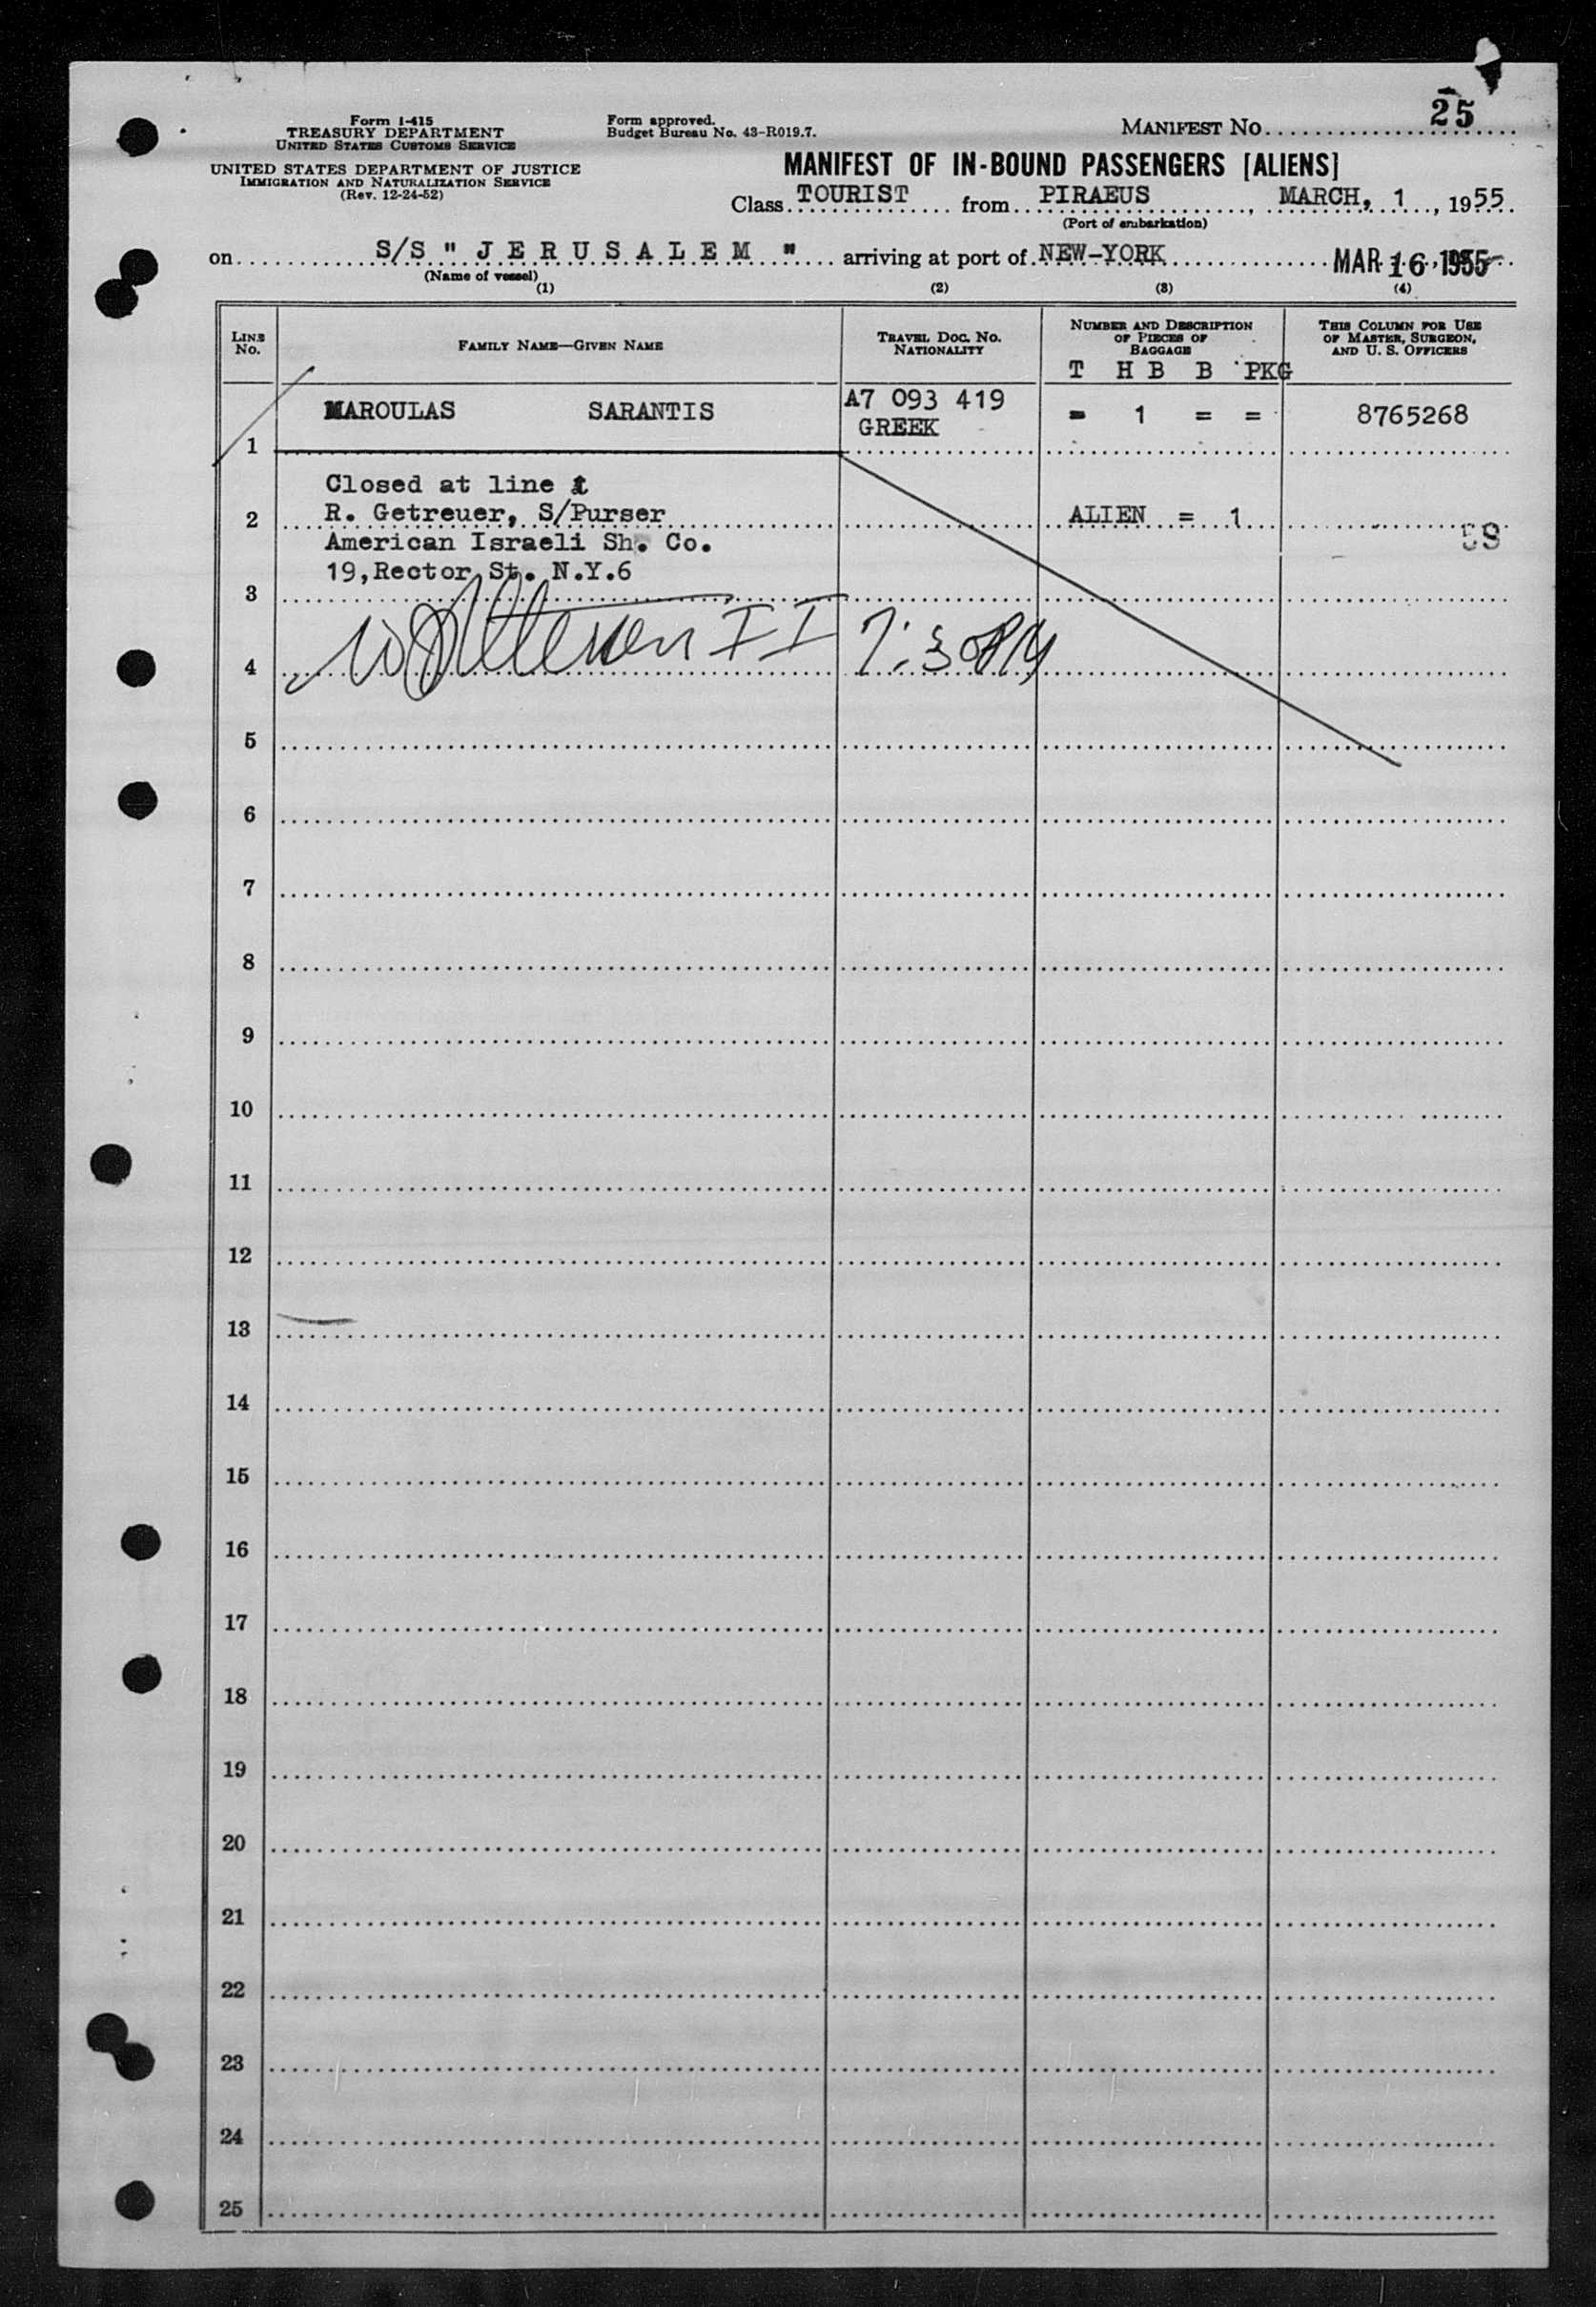 25
Form I-415
TREASURY DEPARTMENT
UNITED STATES CUSTOMS SERVICE
Form approved.
Budget Bureau No. 43-R019.7.
MANIFEST NO.
UNITED STATES DEPARTMENT OF JUSTICE
IMMIGRATION AND NATURALIZATION SERVICE
(Rev. 12-24-52)
MANIFEST OF IN-BOUND PASSENGERS [ALIENS]
Class TOURIST from PIRAEUS, MARCH, 1, 1955
(Port of embarkation)
on S/S " J E R U S A L E M " arriving at port of NEW-YORK MAR 16 1955
(Name of vessel)
(1) (2) (3) (4)
LINE NO.
FAMILY NAME—GIVEN NAME
TRAVEL DOC. NO. NATIONALITY
NUMBER AND DESCRIPTION OF PIECES OF BAGGAGE
THIS COLUMN FOR USE OF MASTER, SURGEON, AND U. S. OFFICERS
T H B B PKG
1 MAROULAS SARANTIS A7 093 419 - 1 = = 8765268
GREEK
Closed at line 1
2 R. Getreuer, S/Purser ALIEN = 1
American Israeli Sh. Co.
59
19,Rector St. N.Y.6
3
4 II 7:30PM
5
6
7
8
9
10
11
12
13
14
15
16
17
18
19
20
21
22
23
24
25